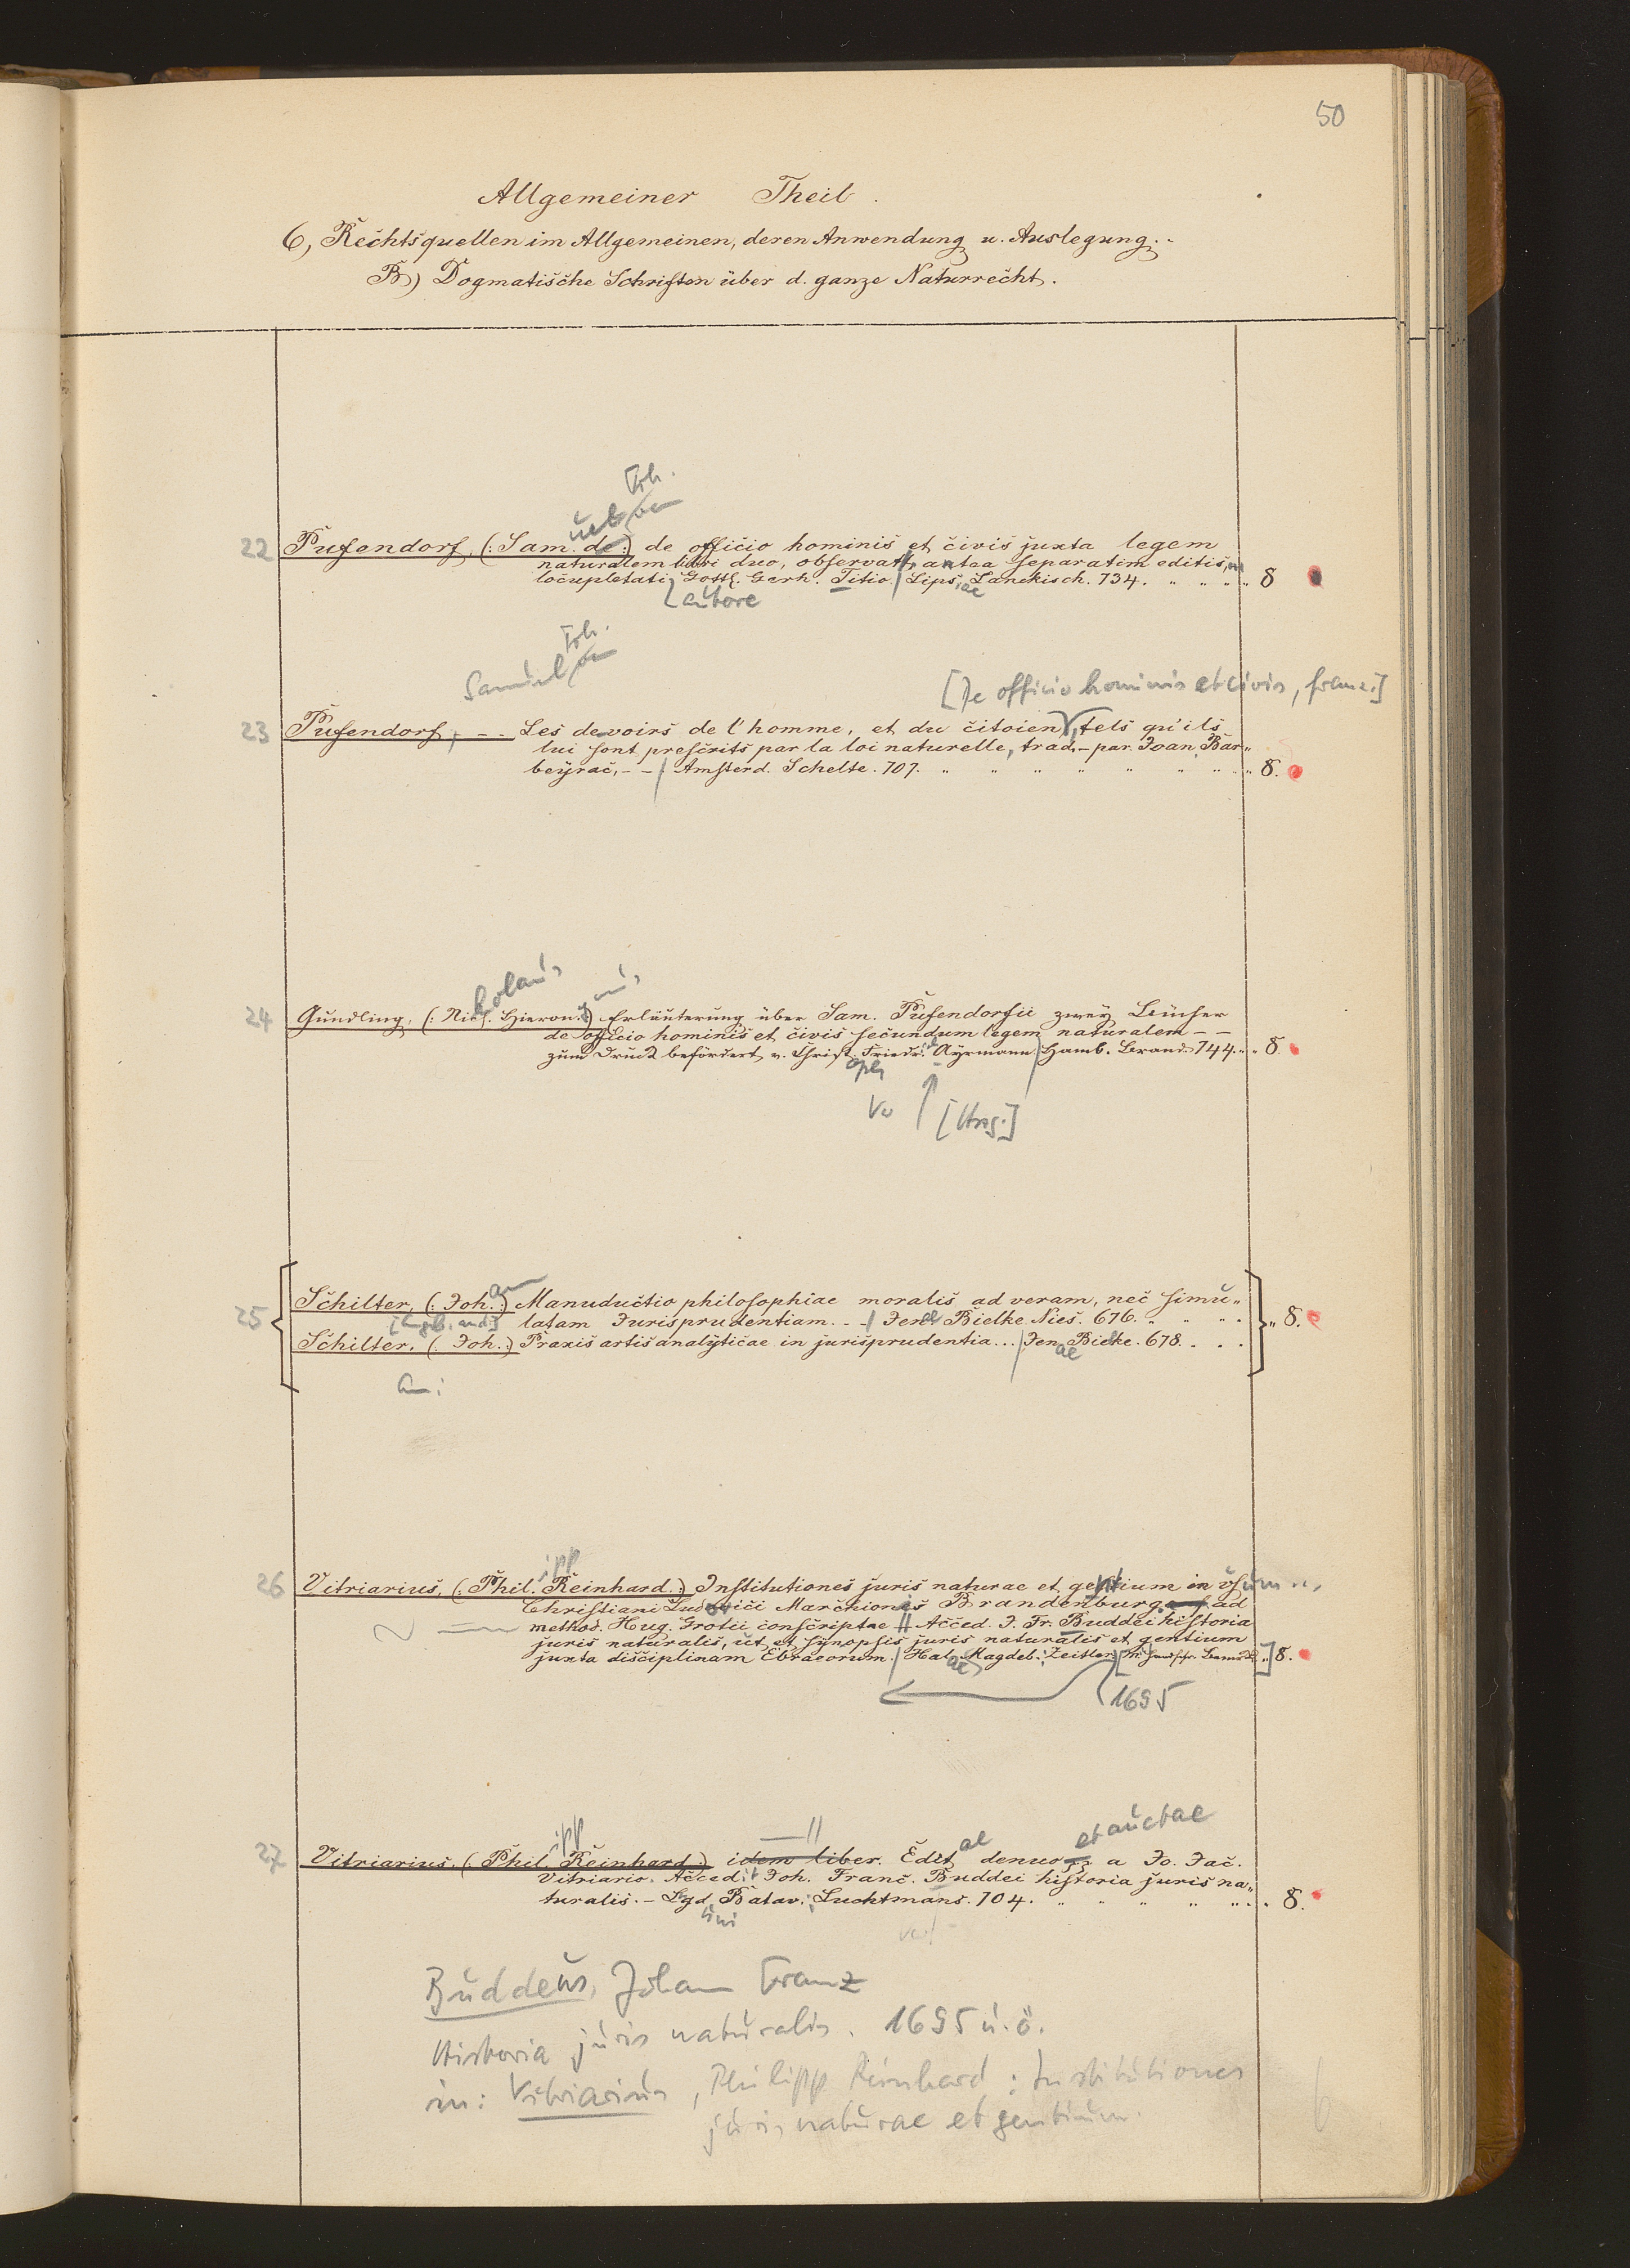 50
Allgemeiner Theil.
6, Rechtsquellen im Allgemeinen, deren Anwendung u. Auslegung.
B) Dogmatische Schriften über d. ganze Naturrecht.
Frh.
uel von
22 Pufendorf, (: Sam. de :) de officio hominis et civis juxta legem
naturalem libri duo, observatt. antea separatim editis,
locupletati Gottl. Gerh. Titio / Lips.iae Lanckisch. 734. " " " " 8
autore
Frh.
Samuel von
[De officio hominis et civis, franz.]
23 Pufendorf, - - Les devoirs de l'homme, et du citoien, tels qu'ils
lui sont prescrits par la loi naturelle, trad. - par. Joan Bar"
beyrac, - - / Amsterd. Schelte. 707. " " " " " " " " 8.
kolaus ymus
24 Gundling, (: Nic. Hieron. :) Erläuterung über Sam. Pufendorfii zwey Bücher
de officio hominis et civis secundum legem naturalem - -
zum Druck befördert v. Christ. Friedr. Ayrmann / Hamb. Brand. 744. " " 8.
oph
Vw [Hrsg.]
25 Schilter, (: Joh. :) Manuductio philosophiae moralis ad veram, nec simu"
[Angeb. and:] latam Jurisprudentiam. - - / Jenae Bielke Nies. 676. " " " "
Schilter, (: Joh. :) Praxis artis analyticae in jurisprudentia... / Jenae Bielke. 678. . . . " 8.
an:
ipp
26 Vitriarius, (: Phil. Reinhard. :) Institutiones juris naturae et gentium in usum
Christiani Ludovici Marchionis Brandenburg. ad
method. Hug. Grotii conscriptae // Acced. J. Fr. Buddei historia
juris naturalis, ut et synopsis juris naturalis et gentium
juxta disciplinam Ebraeorum. / Halae Magdeb. Zeitler [m. handschr. Bemerk.] 8.
1695
ipp // ae et auctae
27 Vitriarius. (: Phil. Reinhard :) idem liber. Edit denuo a Jo. Jac.
Vitriario. Acced. Joh. Franc. Buddei historia juris na"
turalis. - Lgd. Batav.; Luchtmans. 704. " " " " " . 8.
uni
Buddeus, Johann Franz
Historia juris naturalis. 1695 u. ö.
in: Vitriarius, Philipp Reinhard: Institutiones
juris naturae et gentium.